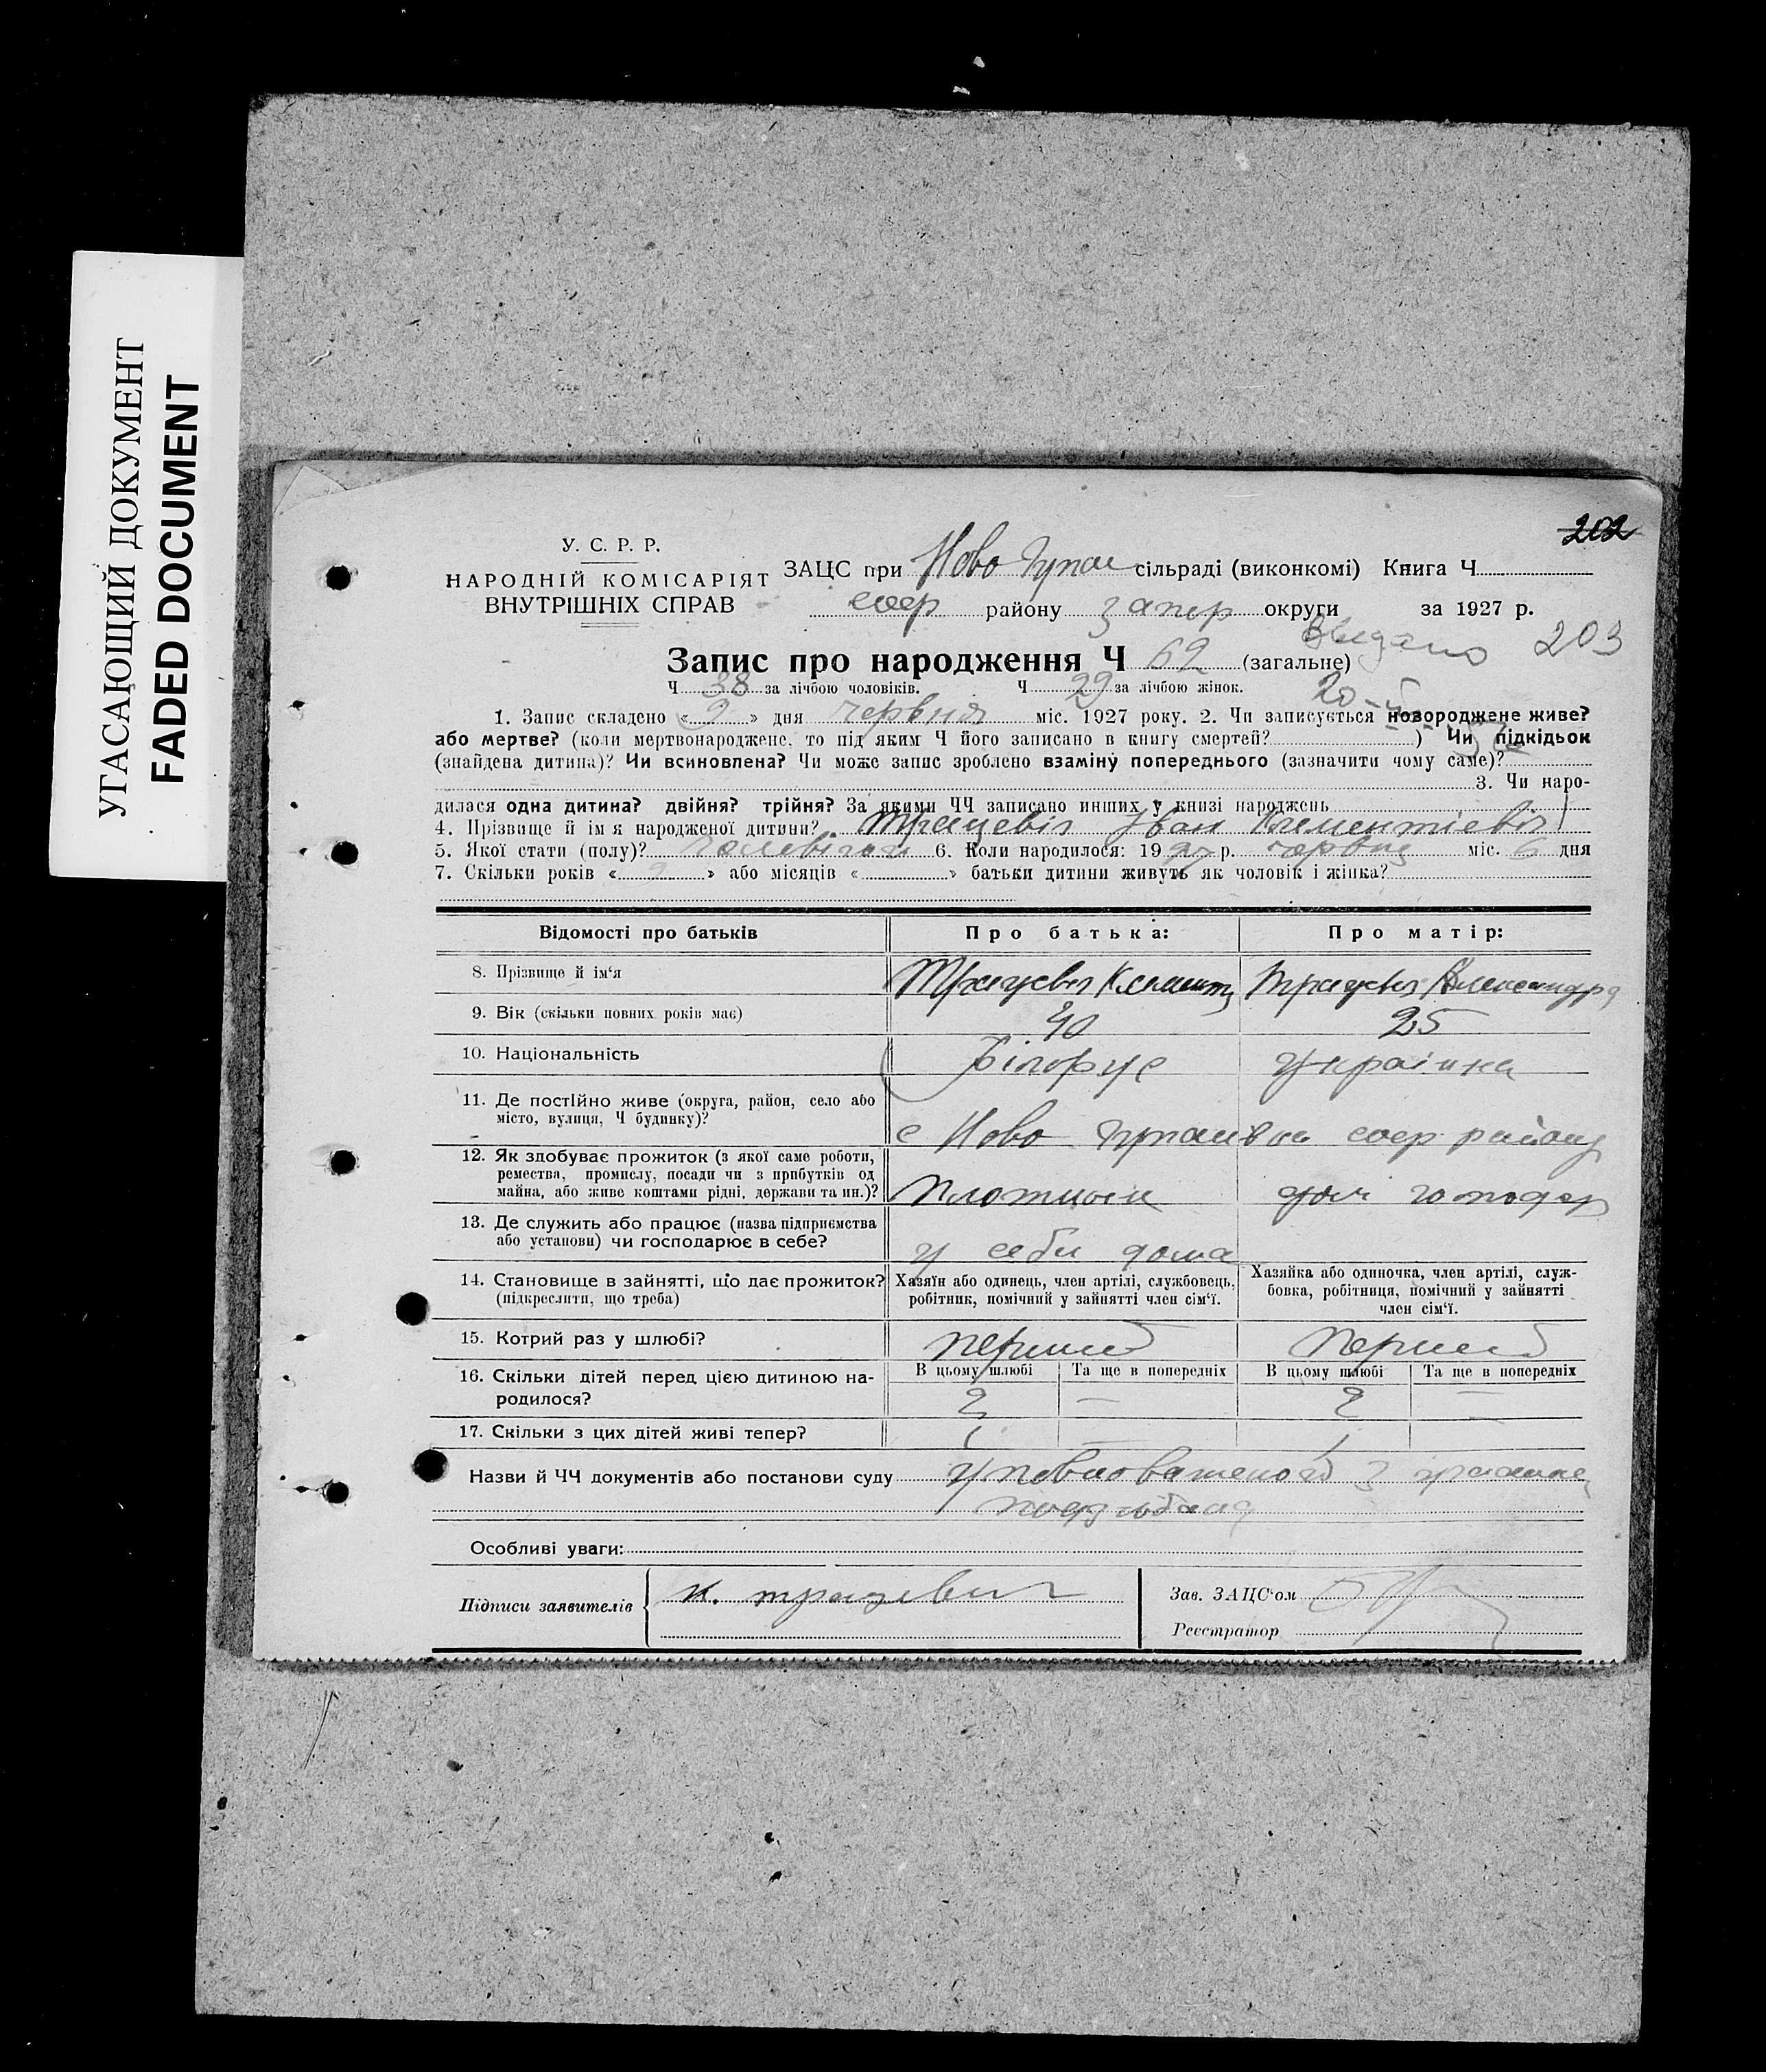 УГАСАЮЩИЙ ДОКУМЕНТ
FADED DOCUMENT
202
У. С. Р. Р.
НАРОДНІЙ КОМІСАРІЯТ
ВНУТРІШНІХ СПРАВ
ЗАЦС при Ново сільраді (виконкомі) Книга Ч
району запор округи за 1927 р.
Видано 203
Запис про народження Ч 62 (загальне)
Ч 38 за лічбою чоловіків. Ч 29 за лічбою жінок.
1. Запис складено « 9 » дня червня міс. 1927 року. 2. Чи записується новороджене живе?
або мертве? (коли мертвонароджене, то під яким Ч його записано в книгу смертей? ) Чи підкідьок
(знайдена дитина)? Чи всиновлена? Чи може запис зроблено взаміну попереднього (зазначити чому саме)?
3. Чи наро-
дилася одна дитина? двійня? трійня? За якими ЧЧ записано инших у книзі народжень
4. Прізвище й ім я народженої дитини? Трацевіч Іван Клементіевіч
5. Якої стати (полу)? 6. Коли народилося: 1927 р. червня міс. 6 дня
7. Скільки років « » або місяців « » батьки дитини живуть як чоловік і жінка?
Відомості про батьків
Про батька:
Про матір:
8. Прізвище й ім‘я Трацевіч Трацевіч Александра
9. Вік (скільки повних років має) 40 25
10. Національність Білорус українка
11. Де постійно живе (округа, район, село або
місто, вулиця, Ч будинку)? с Ново району
12. Як здобуває прожиток (з якої саме роботи,
ремества, промислу, посади чи з прибутків од
майна, або живе коштами рідні, держави та ин.)? плотник дом господар
13. Де служить або працює (назва підприємства
або установи) чи господарює в себе? у себи дома
14. Становище в зайнятті, що дає прожиток?
(підкреслити, що треба)
Хазяїн або одинець, член артілі, службовець,
робітник, помічний у зайнятті член сім‘ї.
Хазяйка або одиночка, член артілі, служ-
бовка, робітниця, помічний у зайнятті
член сім‘ї.
15. Котрий раз у шлюбі? перший перший
16. Скільки дітей перед цією дитиною на-
родилося?
В цьому шлюбі Та ще в попередніх В цьому шлюбі Та ще в попередніх
2 — 2 —
17. Скільки з цих дітей живі тепер? 1 — 1
Назви й ЧЧ документів або постанови суду
Особливі уваги:
Підписи заявителів к. трацевич
Зав. ЗАЦС‘ом
Реєстратор